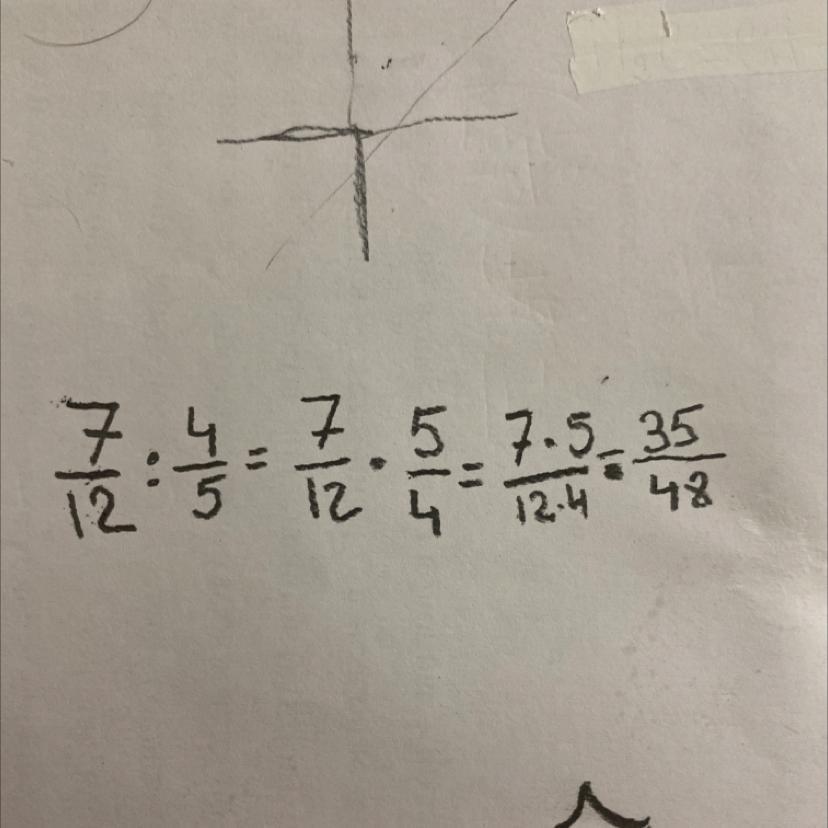 7/12 : 4/5 = 7/12 · 5/4 = 7·5/12·4 = 35/48